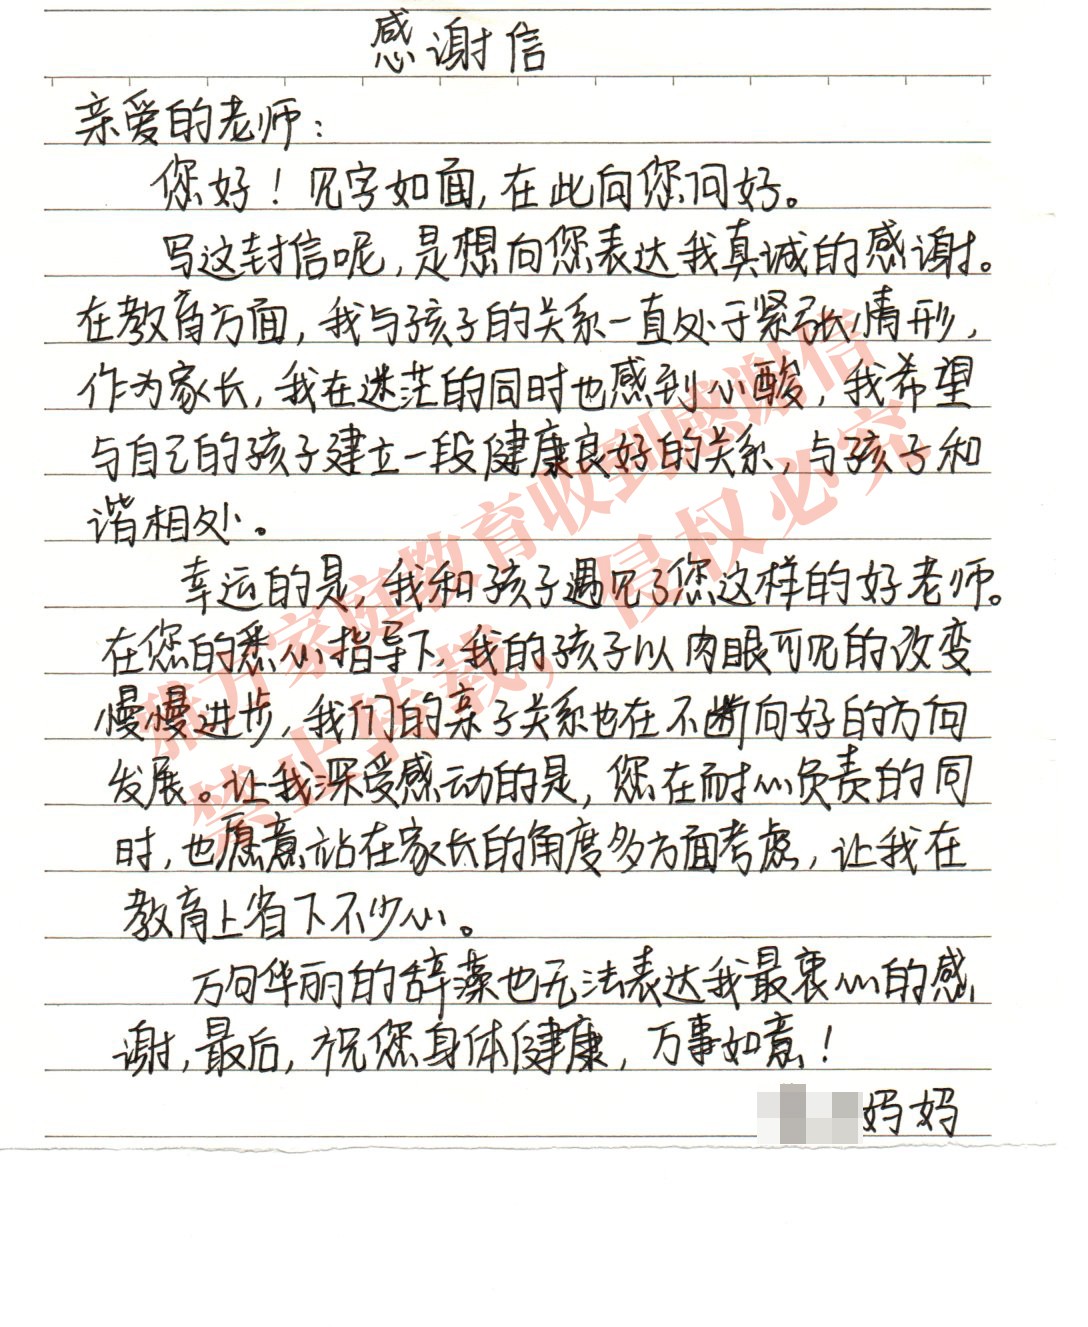 感谢信
亲爱的老师：
您好！见字如面，在此向您问好。
写这封信呢，是想向您表达我真诚的感谢。
在教育方面，我与孩子的关系一直处于紧张情形，
作为家长，我在迷茫的同时也感到心酸，我希望
与自己的孩子建立一段健康良好的关系，与孩子和
谐相处。
幸运的是，我和孩子遇见了您这样的好老师。
在您的悉心指导下，我的孩子以肉眼可见的改变
慢慢进步，我们的亲子关系也在不断向好的方向
发展。让我深受感动的是，您在耐心负责的同
时，也愿意站在家长的角度多方面考虑，让我在
教育上省下不少心。
万句华丽的辞藻也无法表达我最衷心的感
谢，最后，祝您身体健康，万事如意！
妈妈
家庭教育收到感谢信
禁止转载，侵权必究